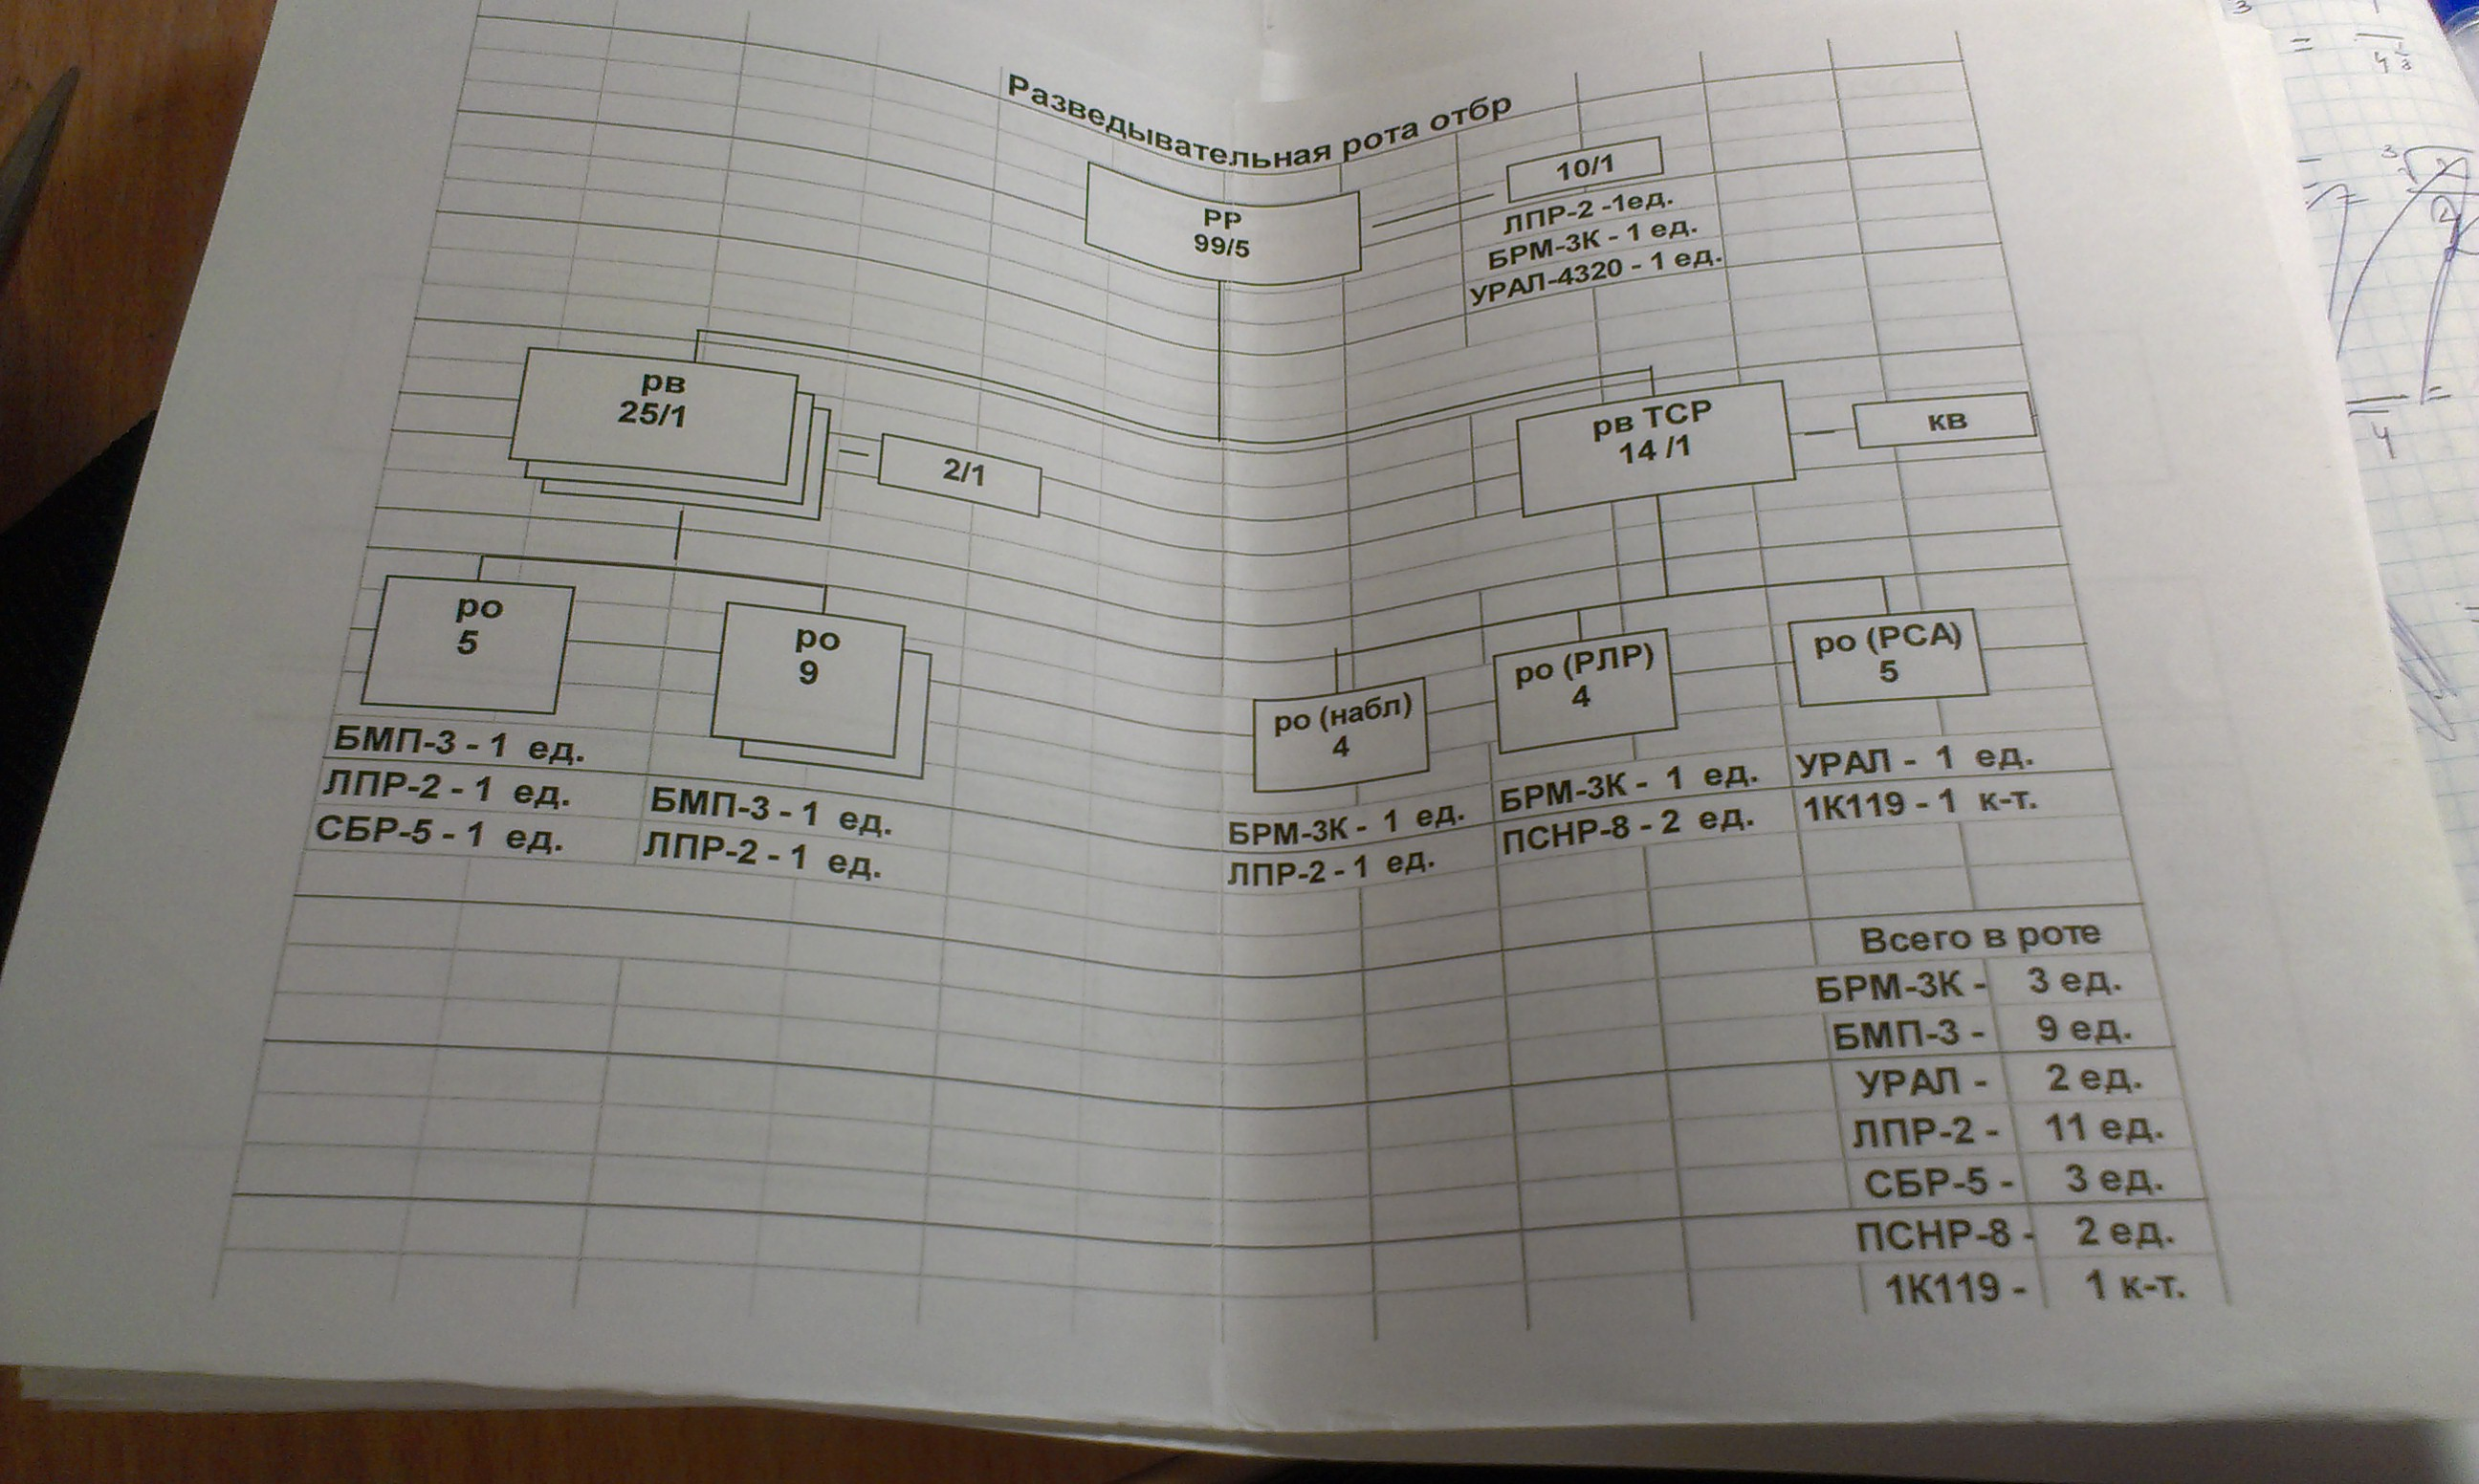 Разведывательная рота отбр
РР
99/5
10/1
ЛПР-2 -1ед.
БРМ-3К - 1 ед.
УРАЛ-4320 - 1 ед.
рв
25/1
2/1
рв ТСР
14 /1
кв
ро
5
ро
9
ро (набл)
4
ро (РЛР)
4
ро (РСА)
5
БМП-3 - 1 ед.
ЛПР-2 - 1 ед.
СБР-5 - 1 ед.
БМП-3 - 1 ед.
ЛПР-2 - 1 ед.
БРМ-3К - 1 ед.
ЛПР-2 - 1 ед.
БРМ-3К - 1 ед.
ПСНР-8 - 2 ед.
УРАЛ - 1 ед.
1К119 - 1 к-т.
Всего в роте
БРМ-3К - 3 ед.
БМП-3 - 9 ед.
УРАЛ - 2 ед.
ЛПР-2 - 11 ед.
СБР-5 - 3 ед.
ПСНР-8 - 2 ед.
1К119 - 1 к-т.